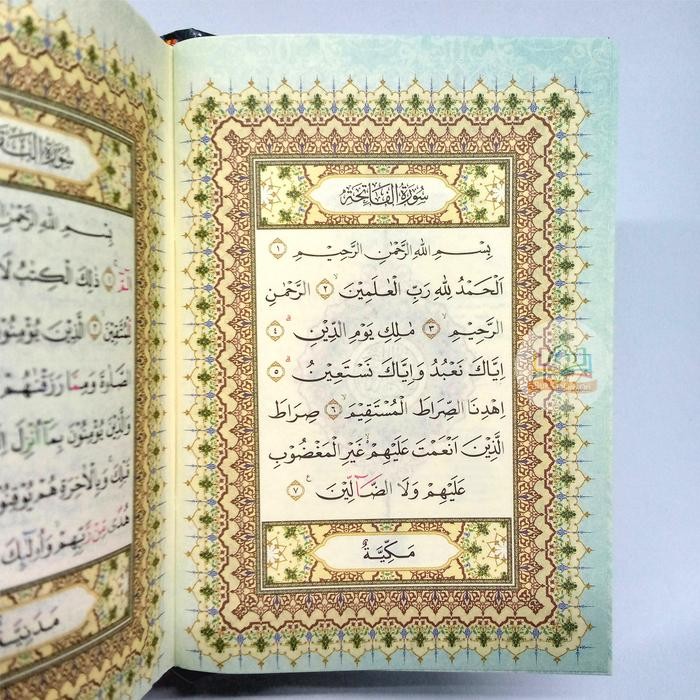 سُورَةُ الْفَاتِحَةِ
بِسْمِ اللهِ الرَّحْمٰنِ الرَّحِيْمِ ١
اَلْحَمْدُ لِلّٰهِ رَبِّ الْعٰلَمِيْنَ ٢ الرَّحْمٰنِ
الرَّحِيْمِ ٣ مٰلِكِ يَوْمِ الدِّيْنِ ٤
اِيَّاكَ نَعْبُدُ وَاِيَّاكَ نَسْتَعِيْنُ ٥
اِهْدِنَا الصِّرَاطَ الْمُسْتَقِيْمَ ٦ صِرَاطَ
الَّذِيْنَ اَنْعَمْتَ عَلَيْهِمْ غَيْرِ الْمَغْضُوْبِ
عَلَيْهِمْ وَلَا الضَّآلِّيْنَ ٧
مَكِّيَّةٌ
بِسْمِ اللهِ الرَّحْمٰنِ
ذٰلِكَ الْكِتٰبُ لَا
لِّلْمُتَّقِيْنَ ٢ الَّذِيْنَ يُؤْمِنُوْنَ
الصَّلٰوةَ وَمِمَّا رَزَقْنٰهُمْ
وَالَّذِيْنَ يُؤْمِنُوْنَ بِمَآ اُنْزِلَ
قَبْلِكَ وَبِالْاٰخِرَةِ هُمْ يُوْقِنُوْنَ
هُدًى مِّنْ رَّبِّهِمْ وَاُولٰٓئِكَ
مَدَنِيَّةٌ